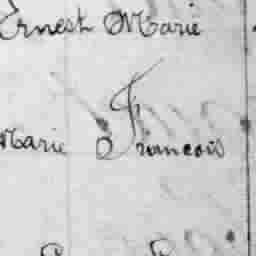 Ernest Marie
Marie Francois